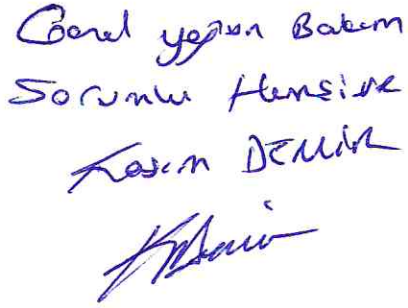 Genel yoğun Bakım
Sorumlu Hemşire
Kasım DEMİR